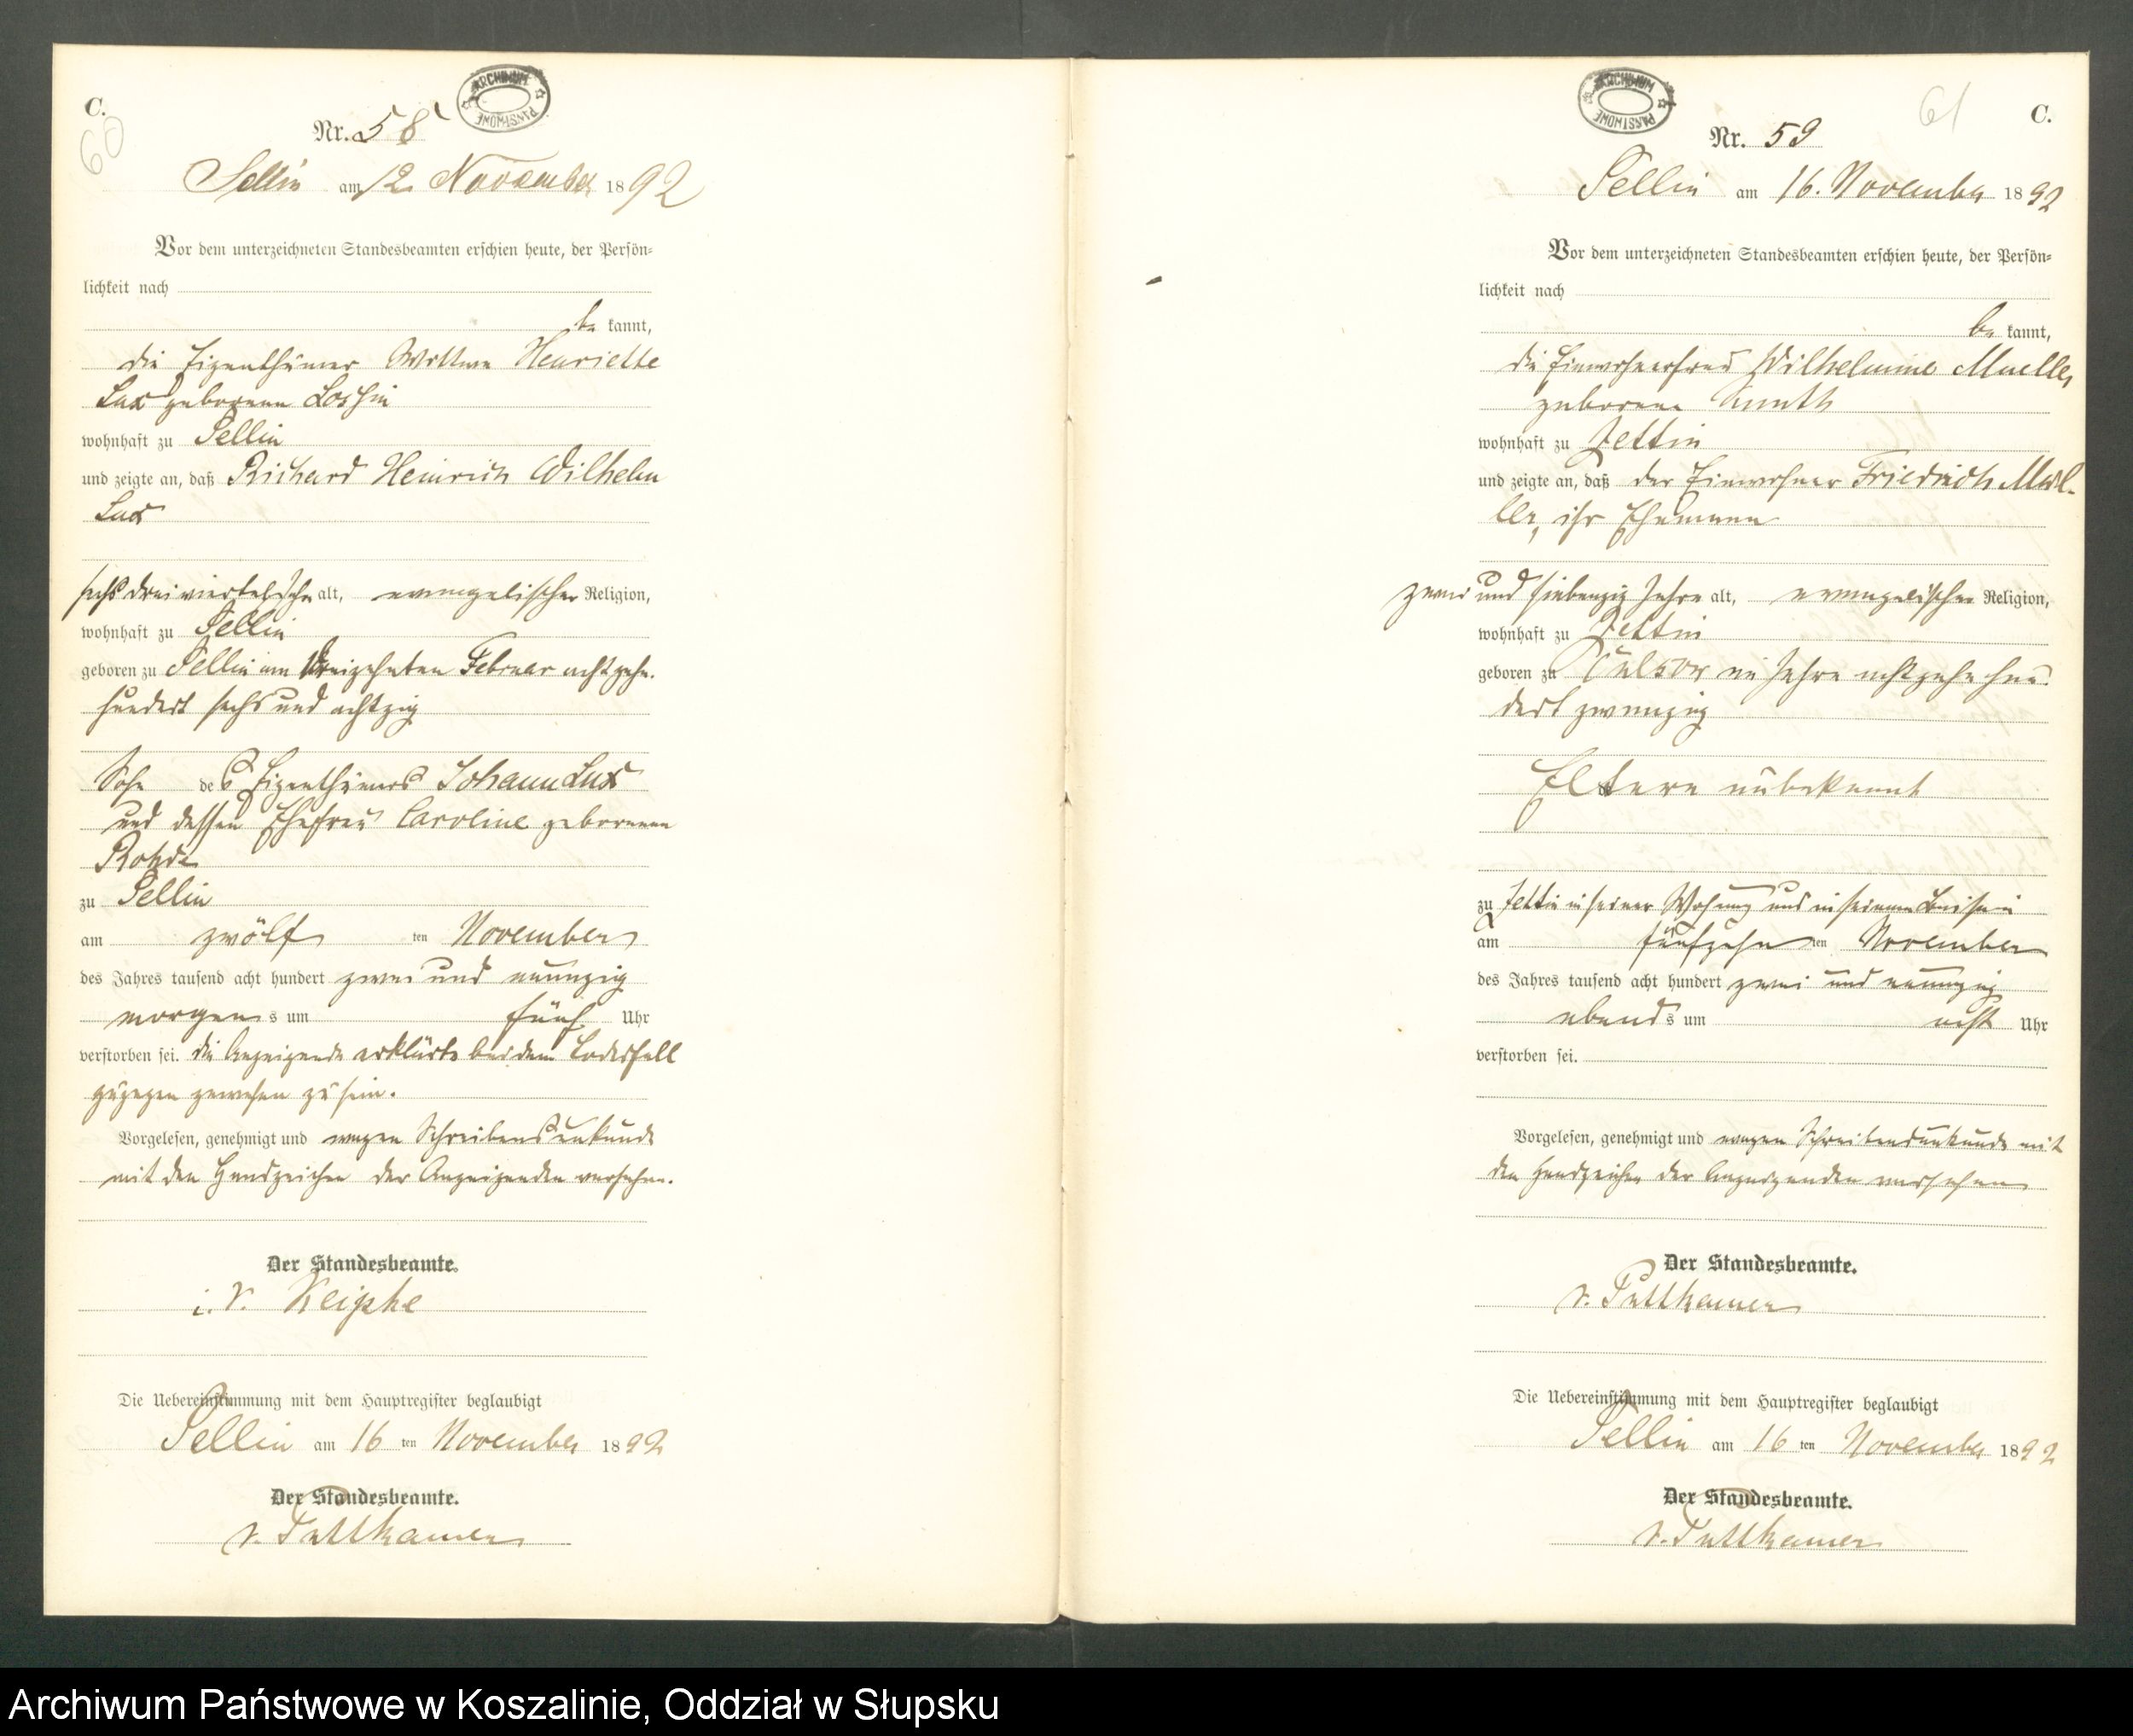 C.
60
ARCHIWUM PAŃSTWOWE
Nr. 58
Sellin am 12 November 1892
Vor dem unterzeichneten Standesbeamten erschien heute, der Persön-
lichkeit nach
be kannt,
die Eigenthümer Wittwe Henriette
Lux geborenen Loschin
wohnhaft zu Sellin
und zeigte an, daß Richard Heinrich Wilhelm
Lux
sechs dreiviertel Jahr alt, evangelischer Religion,
wohnhaft zu Sellin
geboren zu Sellin am dreizehnten Februar achtzehn-
hundert sechs und achtzig
Sohn des Eigenthümers Johann Lux
und dessen Ehefrau Caroline geborenen
Rohde
zu Sellin
am zwölf ten November
des Jahres tausend acht hundert zwei und neunzig
morgens um fünf Uhr
verstorben sei. die Anzeigende erklärte bei dem Todesfall
zugegen gewesen zu sein.
Vorgelesen, genehmigt und wegen Schreibensunkunde
mit den Handzeichen der Anzeigenden versehen.
Der Standesbeamte.
i. V.
Die Uebereinstimmung mit dem Hauptregister beglaubigt
Sellin am 16 ten November 1892
Der Standesbeamte.
v. Puttkamer
61
C.
ARCHIWUM PAŃSTWOWE
Nr. 59
Sellin am 16. November 1892
Vor dem unterzeichneten Standesbeamten erschien heute, der Persön-
lichkeit nach
be kannt,
die Einwohnerfrau Wilhelmine Mueller
geborene
wohnhaft zu Jettin
und zeigte an, daß der Einwohner Friedrich Muel-
ler, ihr Ehemann
zwei und siebenzig Jahre alt, evangelischer Religion,
wohnhaft zu Jettin
geboren zu im Jahre achtzehn hun-
dert zwanzig
Eltern unbekannt
zu Jettin in seiner Wohnung und in seinem Beisein
am fünfzehn ten November
des Jahres tausend acht hundert zwei und neunzig
abends um acht Uhr
verstorben sei.
Vorgelesen, genehmigt und wegen Schreibensunkunde mit
den Handzeichen der Anzeigenden versehen
Der Standesbeamte.
v. Puttkamer
Die Uebereinstimmung mit dem Hauptregister beglaubigt
Sellin am 16 ten November 1892
Der Standesbeamte.
v. Puttkamer
Archiwum Państwowe w Koszalinie, Oddział w Słupsku